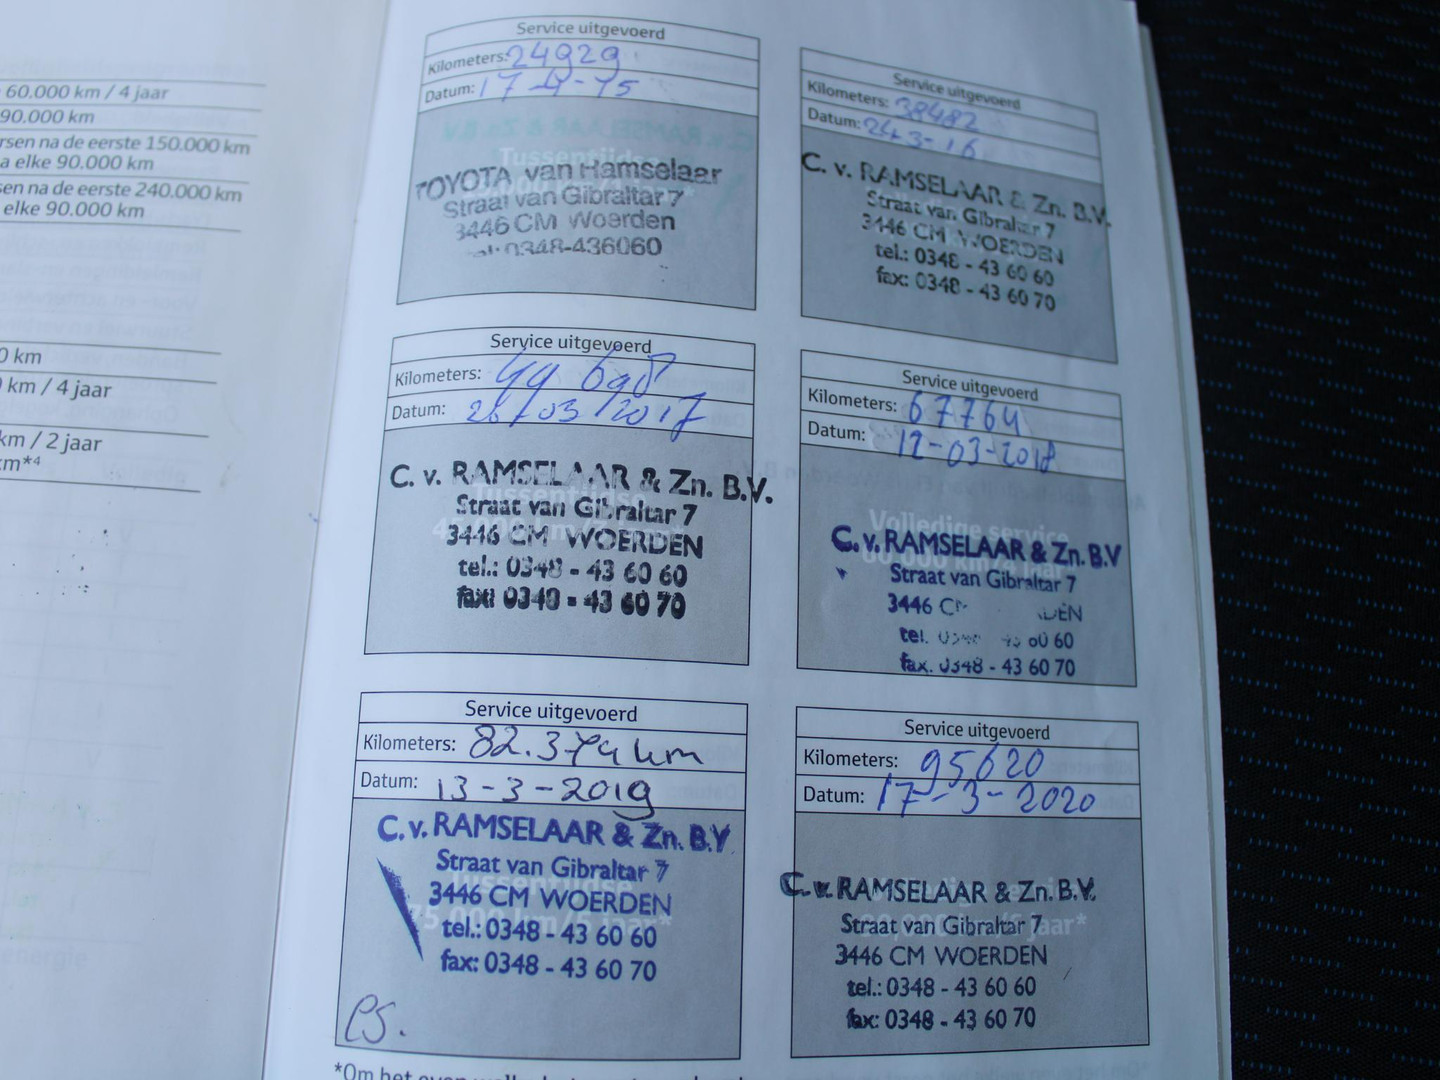 60.000 km / 4 jaar
90.000 km
rsen na de eerste 150.000 km
a elke 90.000 km
sen na de eerste 240.000 km
elke 90.000 km
0 km
km / 4 jaar
km / 2 jaar
km*4
Service uitgevoerd
Kilometers: 24929
Datum: 17-4-15
TOYOTA van Hamselaar
Straat van Gibraltar 7
3446 CM Woerden
tel: 0348-436060
Service uitgevoerd
Kilometers: 38482
Datum: 24-3-16
C. v. RAMSELAAR & Zn. B.V.
Straat van Gibraltar 7
3446 CM WOERDEN
tel.: 0348 - 43 60 60
fax: 0348 - 43 60 70
Service uitgevoerd
Kilometers:
Datum: 28/03/2017
C. v. RAMSELAAR & Zn. B.V.
Straat van Gibraltar 7
3446 CM WOERDEN
tel.: 0348 - 43 60 60
fax: 0348 - 43 60 70
Service uitgevoerd
Kilometers: 67764
Datum: 12-03-2018
Volledige service
60.000 km/4 jaar
C. v. RAMSELAAR & Zn. B.V
Straat van Gibraltar 7
3446 CM WOERDEN
tel. 0348 - 43 60 60
fax. 0348 - 43 60 70
Service uitgevoerd
Kilometers: 82.374 km
Datum: 13-3-2019
C. v. RAMSELAAR & Zn. B.V
Straat van Gibraltar 7
Tussentijdse
3446 CM WOERDEN
75.000 km/5 jaar*
tel.: 0348 - 43 60 60
fax: 0348 - 43 60 70
Service uitgevoerd
Kilometers: 95620
Datum: 17-3-2020
C. v. RAMSELAAR & Zn. B.V.
Straat van Gibraltar 7
3446 CM WOERDEN
tel.: 0348 - 43 60 60
fax: 0348 - 43 60 70
*Om het even